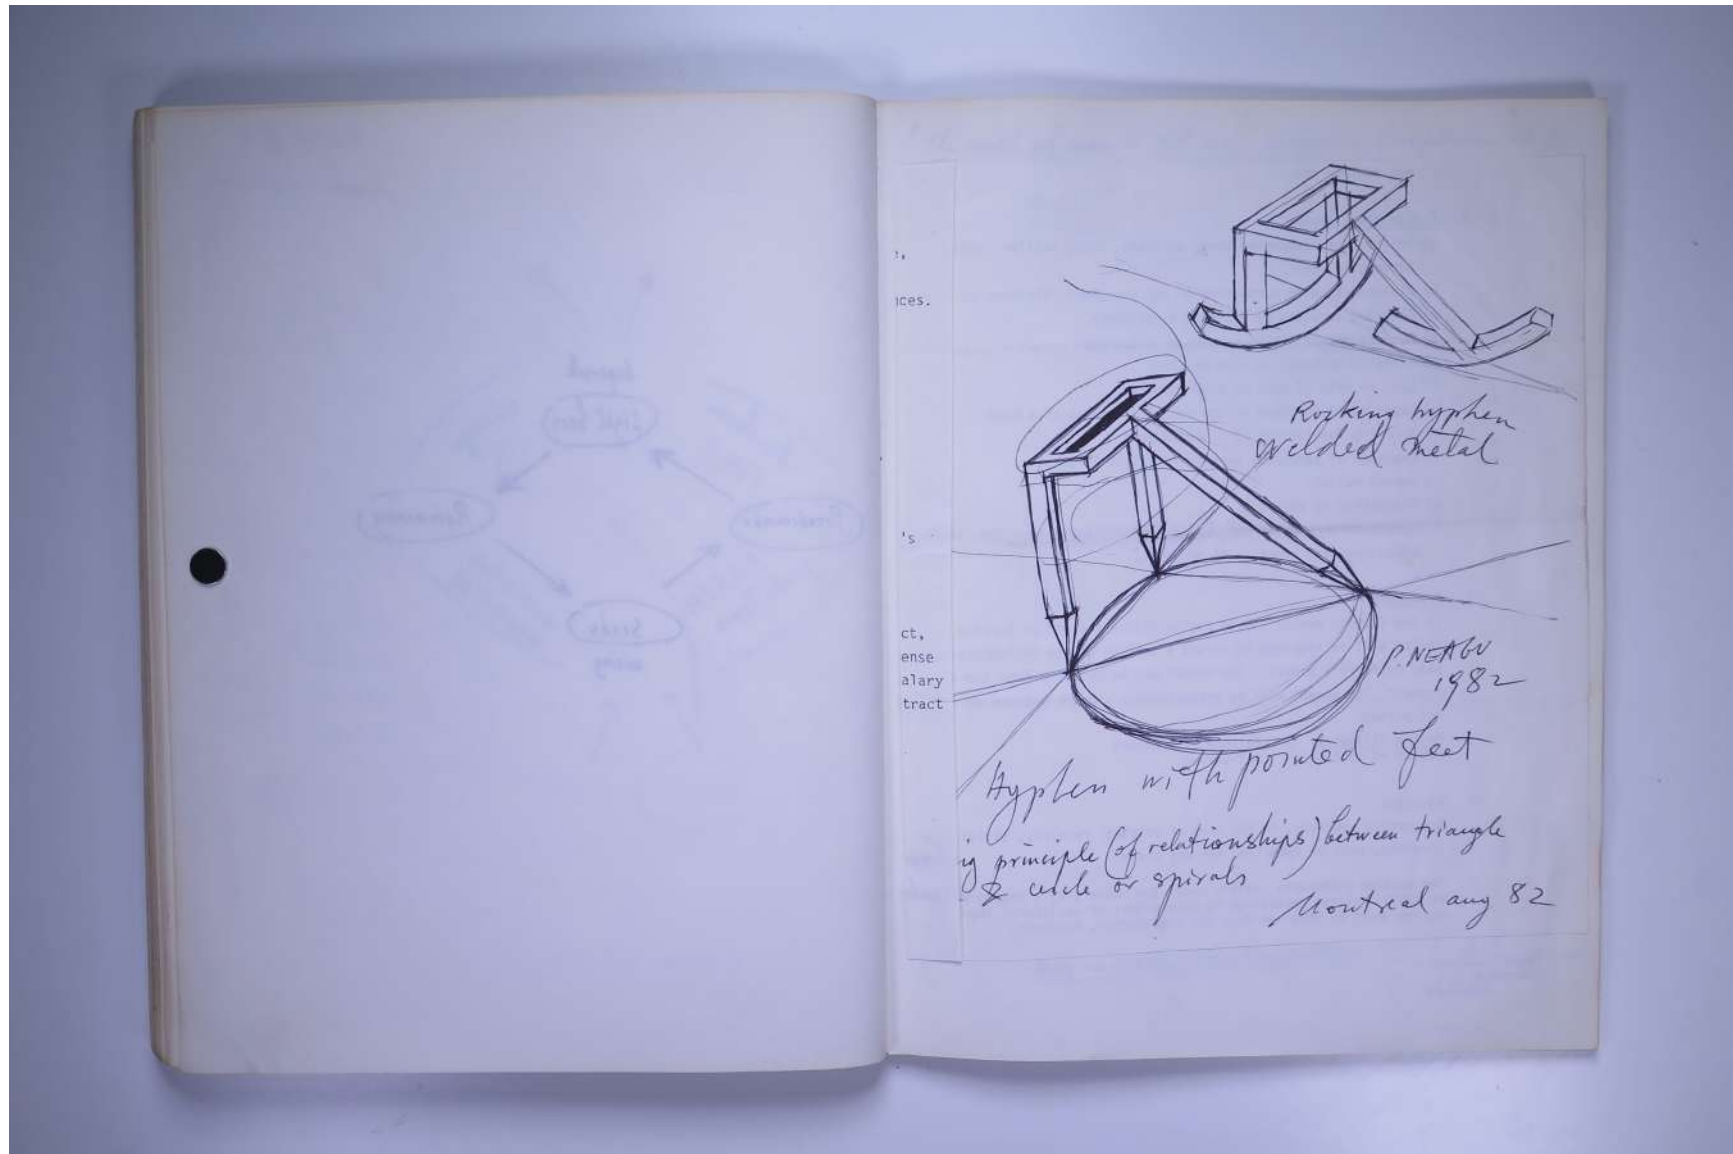 ices.
's
ct,
ense
alary
tract
Rocking hyphen
welded metal
P. NEAGU
1982
Hyphen with pointed feet
ig principle (of relationships) between triangle
& circle or spirals
Montreal aug 82